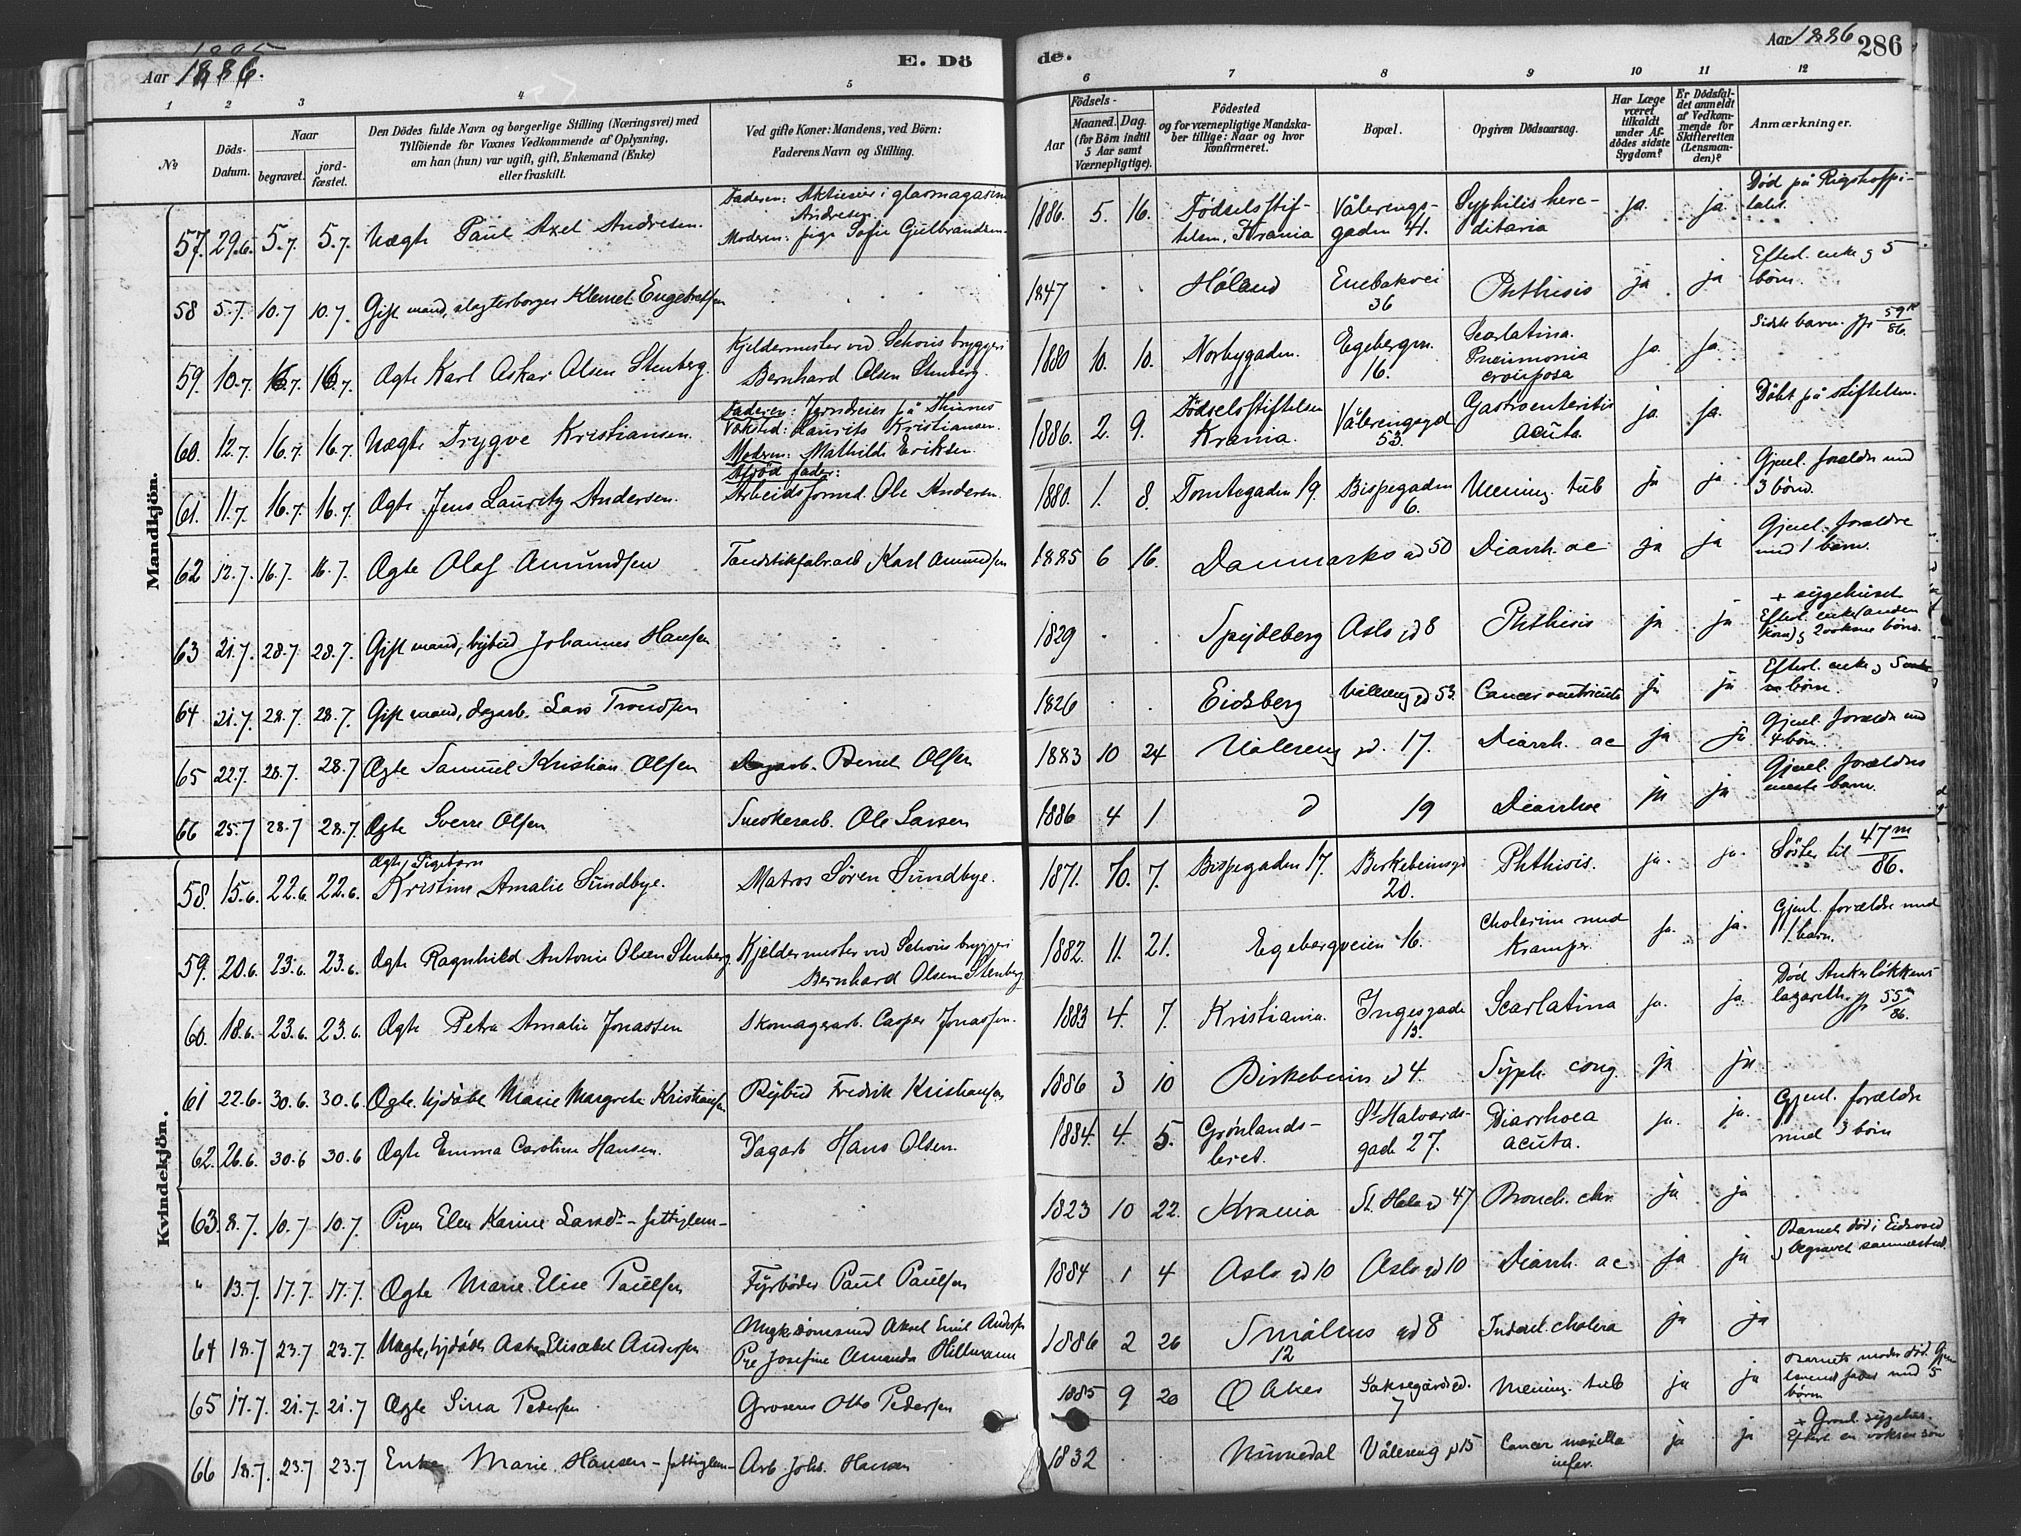 Aar 1886.
E. Dö
de.
Aar 1886
286
1 2 3 4 5 6 7 8 9 10 11 12
No
Döds-
Datum.
Naar
begravet.
jord-
fæstet.
Den Dödes fulde Navn og borgerlige Stilling (Næringsvei) med
Tilföiende for Voxnes Vedkommende af Oplysning,
om han (hun) var ugift, gift, Enkemand (Enke)
eller fraskilt.
Ved gifte Koner: Mandens, ved Börn:
Faderens Navn og Stilling.
Aar
Födsels-
Maaned. Dag.
(for Börn indtil
5 Aar samt
Værnepligtige).
Födested
og for værnepligtige Mandska-
ber tillige: Naar og hvor
konfirmeret.
Bopæl.
Opgiven Dödsaarsag.
Har Læge
været
tilkaldt
under Af-
dödes sidste
Sygdom?
Er Dödsfal-
det anmeldt
af Vedkom-
mende for
Skifteretten
(Lensman-
den)?
Anmærkninger.
Mandkjön.
57. 29.6. 5.7. 5.7. Uægte Paul Axel Andresen.
Faderen: i glasmagasin
Andresen.
Moderen: pige Sofie Gulbrandsen.
1886. 5. 16. Födselsstif-
telsen, Krania
Vålerengs-
gaden 41.
Syphilis here-
ditaria
ja. ja
Död på Rigshospi-
talet.
58 5.7. 10.7 10.7. Gift mand, slagterborger Klemet Engebretsen
1847 Höland Enebakvei
36
Phthisis ja ja
Efterl. enke og 5
börn.
59. 10.7. 16.7. 16.7. Ægte Karl Oskar Olsen Stenberg.
Kjeldermester ved Schous bryggeri
Bernhard Olsen Stenberg.
1880 10. 10. Norbygaden. Egebergvn.
16.
Scarlatina.
Pneumonia
crouposa
ja. ja.
Sidste barn. jfr 59 k
86.
60. 12.7. 16.7. 16.7. Uægte Trygve Kristiansen.
Faderen: Jerndreier på Thunes
Værksted: Laurits Kristiansen.
Moderen: Mathilde Eriksen.
1886. 2. 9. Födselsstiftelsen
Krania.
Vålerengsgd
53
Gastroenteritis
acuta.
ja. ja.
Döbt på stiftelsen.
61. 11.7. 16.7. 16.7. Ægte Jens Lauritz Andersen.
Afdöd fader:
Arbeidsformd. Ole Andersen.
1880. 1. 8. Tomtegaden 19. Bispegaden
6.
Mening. tub ja ja.
Gjenl. forældre med
3 börn.
62 12.7. 16.7. 16.7. Ægte Olaf Amundsen
Tandstikfabr.arb Karl Amundsen
1885 6 16. Danmarks gd 50 Diarrh. ac ja ja
Gjenl. forældre
med 1 barn.
63 21.7. 28.7 28.7. Gift mand, bybud Johannes Hansen
1829 Spydeberg Oslo gd 8 Phthisis ja ja
+ sygehuset
Efterl. enke (anden
kone) og 2 voksne börn.
64 21.7. 28.7. 28.7. Gift mand, dagarb. Lars Trondsen
1826 Eidsberg Valereng gd 53. Cancer ventriculi ja ja
Efterl. enke og 5
börn.
65 22.7. 28.7. 28.7 Ægte Samuel Kristian Olsen
Dagarb. Bernt Olsen
1883 10 24 Valereng gd. 17. Diarrh. ac ja ja
Gjenl. forældre med
4 börn.
66 25.7 28.7 28.7. Ægte Sverre Olsen
Snedkerarb. Ole Larsen
1886 4 1 d 19 Diarrhoe ja ja
Gjenl. forældres
eneste barn.
Kvindekjön.
58. 15.6. 22.6. 22.6. Ægte, Pigebarn
Kristine Amalie Sundbye.
Matros Sören Sundbye.
1871. 10. 7. Bispegaden 17. Birkebeinsgd
20.
Phthisis. ja. ja.
Söster til 47 m
86.
59. 20.6. 23.6. 23.6. Ægte Ragnhild Antonie Olsen Stenberg.
Kjeldermester ved Schous bryggeri
Bernhard Olsen Stenberg.
1882. 11. 21. Egebergveien 16.
Cholerine med
Kramper.
ja. ja.
Gjenl. forældre med
1 barn.
60. 18.6. 23.6. 23.6. Ægte Petra Amalie Jonassen
Skomagerarb. Casper Jonassen.
1883 4. 7. Kristiania. Ingesgade
15.
Scarlatina ja. ja.
Död Ankerlökkens
lazareth. jfr 55 m
86.
61 22.6. 30.6. 30.6. Ægte hjdöbt Marie Margrete Kristiansen
Bybud Fredrik Kristiansen
1886 3 10 Birkebeins gd 4. Syph. cong ja ja
62. 26.6. 30.6 30.6 Ægte Emma Caroline Hansen.
Dagarb Hans Olsen.
1884. 4. 5. Grönlands-
leret.
St Halvards-
gade 27.
Diarrhoea
acuta.
ja. ja.
Gjenl. forældre
med 3 börn
63. 8.7. 10.7 10.7. Pigen Elen Karine Larsdt. - fattiglem -
1823 10 22. Krania St. Hals gd 47 Bronch. chr. ja ja
" 13.7. 17.7. 17.7. Ægte Marie Elise Paulsen
Fyrböder Paul Paulsen
1884 1 4 Oslo gd 10 Oslo gd 10 Diarrh. ac ja ja
Barnet död i Eidsvold
og begravet sammesteds.
64 18.7 23.7 23.7. Uægte, hjdöbt Asta Elisabet Andersen
Aksel Emil Andersen
Pge Josefine Amanda Hillmann
1886 2 26 Smålens gd 8
12
Indsl. cholera ja ja
65 17.7. 21.7. 21.7 Ægte Sina Pedersen
Groserer Otto Pedersen
1885 9 20 Ø Aker Saksegårdsgd.
7
Mening. tub ja ja
Barnets moder död. Gjen-
levende fader med 5
börn
66 18.7. 23.7 23.7 Enke Marie Hansen - fattiglem -
Arb Johs. Hansen
1832 Numedal Vålereng gd 15 Cancer maxilla
infer.
ja ja
+ Grönl. sygehus.
Efterl en voksen sön